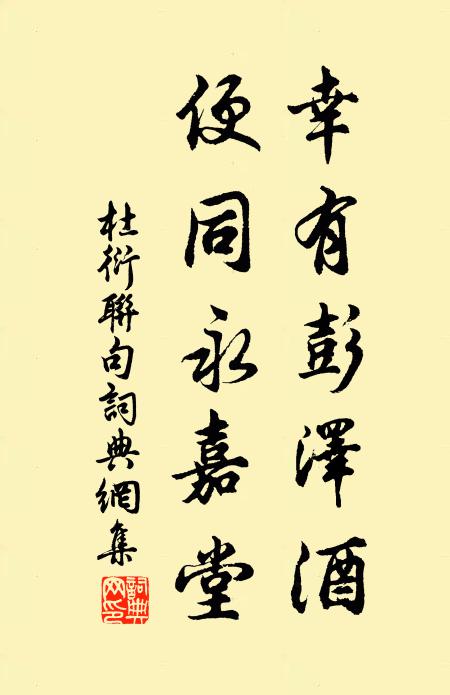 幸有彭澤酒
便同永嘉堂
杜衍聯句詞典網集
詞典
网印